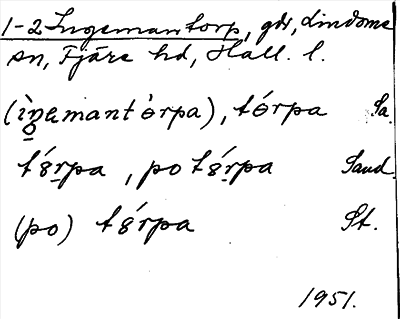 1-2 Ingemantorp, gdr, Lindome
sn, Fjäre hd, Hall. l.
(ìŋemantòrpa), tórpa Sa.
tórpa, po tórpa Sand.
(po) tórpa St.
1951.